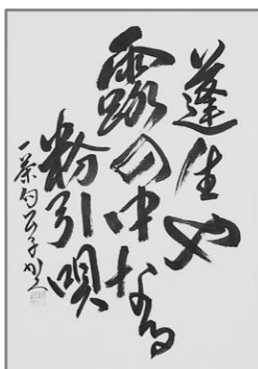 蓬生や
露の中なる
粉引唄
一茶句